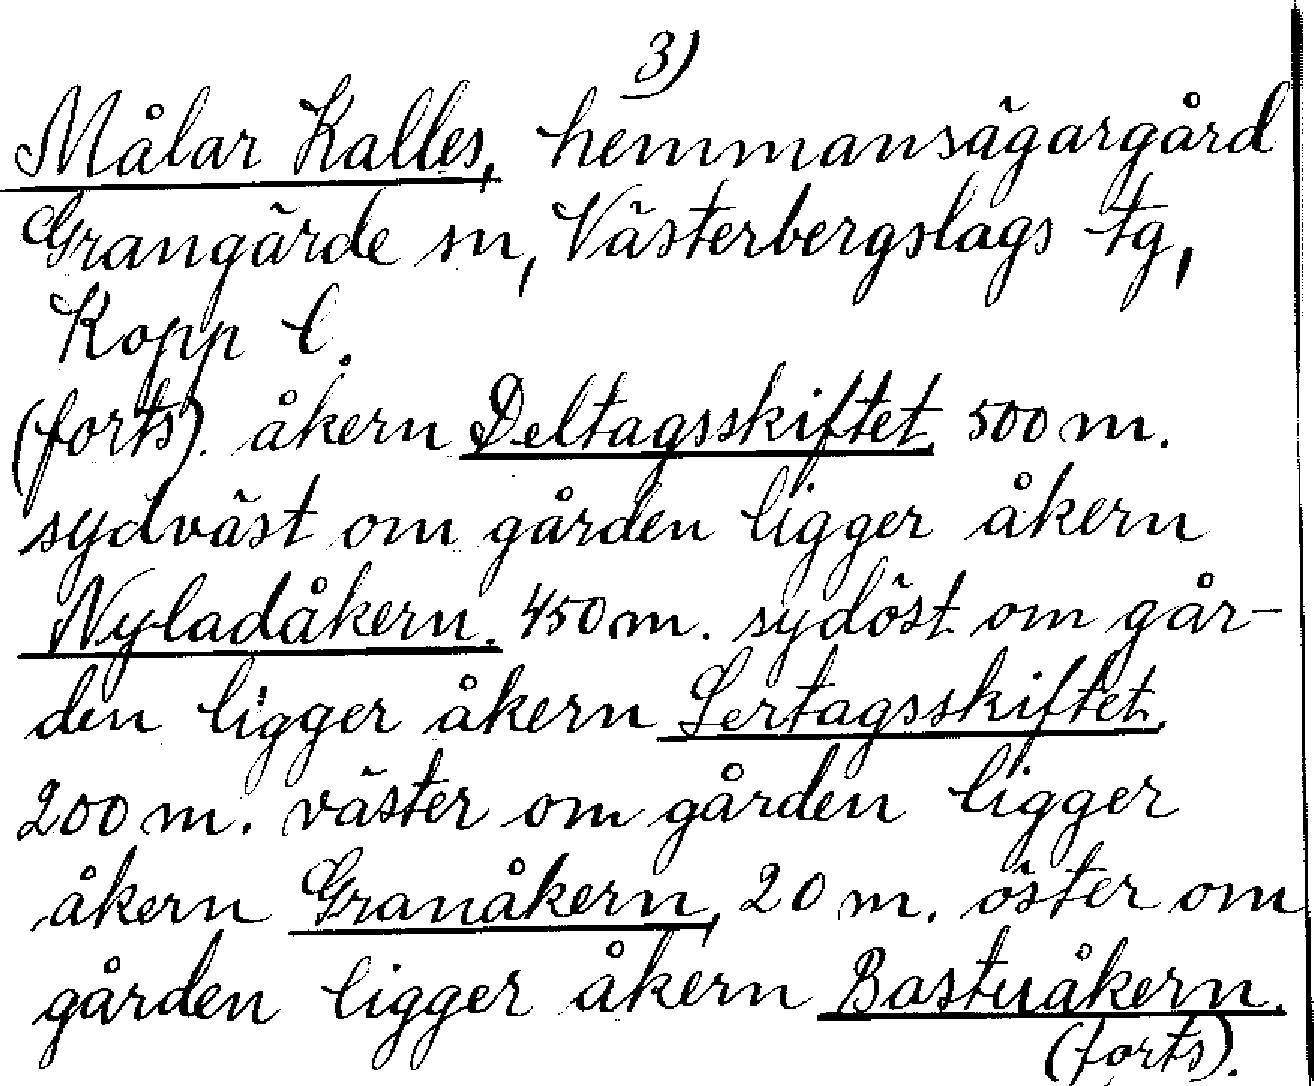 3)
Målar Kalles, hemmansägargård
Grangärde sn, Västerbergslags tg,
Kopp l.
(forts). åkern Deltagsskiftet. 500 m.
sydväst om gården ligger åkern
Nyladåkern. 450 m. sydöst om går-
den ligger åkern Lertagsskiftet.
200 m. väster om gården ligger
åkern Granåkern, 20 m. öster om
gården ligger åkern Bastuåkern.
(forts).